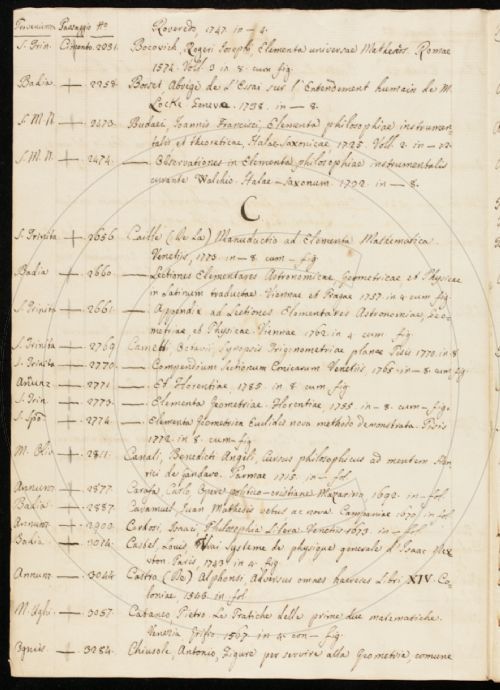 Provenienza Passaggio No Roveredo, 1747. in - 4.
S. Trin. Clemento. 2031. Bocovich, Rogeri Joseph, Elementa universae Matheseos. Romae
1574. Voll. 3 in 8. cum fig.
Badia + 2258. Bosset Abrégé de l'Essai sur l'Entendement humain de M.
Locke Geneve. 1738. in - 8.
S. M. N. + 2473. Budaei, Joannis Francisci, Elementa philosophiae instrumen
talis et theoreticae, Halae Saxonicae, 1725. Voll. 2. in - 12.
S. M. N. + 2474. — Observationes in Elementa philosophiae instrumentalis
curante Walchio. Halae - Saxonum. 1732. in - 8.
C
S. Trinita + 2656. Caille (De La) Manuductio ad Elementa Mathematica
Venetijs, 1773. in - 8 cum - fig.
Badia + 2660. — Lectiones Elementares Astronomicae, Geometricae et Physicae
in Latinum traductae. Viennae et Pragae 1757. in 4 cum fig.
S. Trinita + 2661. — Appendix ad Lectiones Elementaires Astronomiae, Geo-
metriae, et Physicae. Viennae 1762. in 4 cum fig.
S. Trinita + 2769. Octavii, Synopsis Trigonometriae planae Pisis 1770. in 8
S. Trinita + 2770. — Compendium Sectionum Conicarum Venetiis, 1765. in - 8. cum fig.
Anunz + 2771. — Et Florentiae. 1785. in 8. cum fig
S. Trin. + 2773. — Elementa Geometriae. Florentiae, 1755. in - 8. cum - fig.
S. Spo + 2774. — Elementa Geometriae Euclidis nova methodo demonstrata. Pisis
1772. in 8. cum - fig
M. Oliv + 2811. Canali, Benedicti Angeli, Cursus philosophicus ad mentem Hen
rici de Gandavo. Parmae 1715. in - fol.
Annunz + 2877. Carafa, Carlo, Opere politico-cristiane. Mazarino, 1692. in - fol.
Badia + 2887. Caramuel, Juan Mathesis vetus ac nova. Campaniae 1670. in fol.
Annunz + 2900. Cardosi, Isaaci, Philosophia Libera Venetiis 1673. in - fol
Badia + 3014. Castel, Louis, Vrai Systeme de physique generale d'Isaac New
vton Paris, 1743. in 4. fig.
Annunz + 3044. Castro (De) Alphonsi, Adversus omnes haereses Libri XIV. Co-
loniae 1543. in fol
M. Ughi + 3057. Cataneo, Pietro, Le Pratiche delle prime due matematiche
Venezia, Griffo 1567. in 4. con - fig.
+ 3284. Chiusole, Antonio, Figure per servire alla Geometria, comune